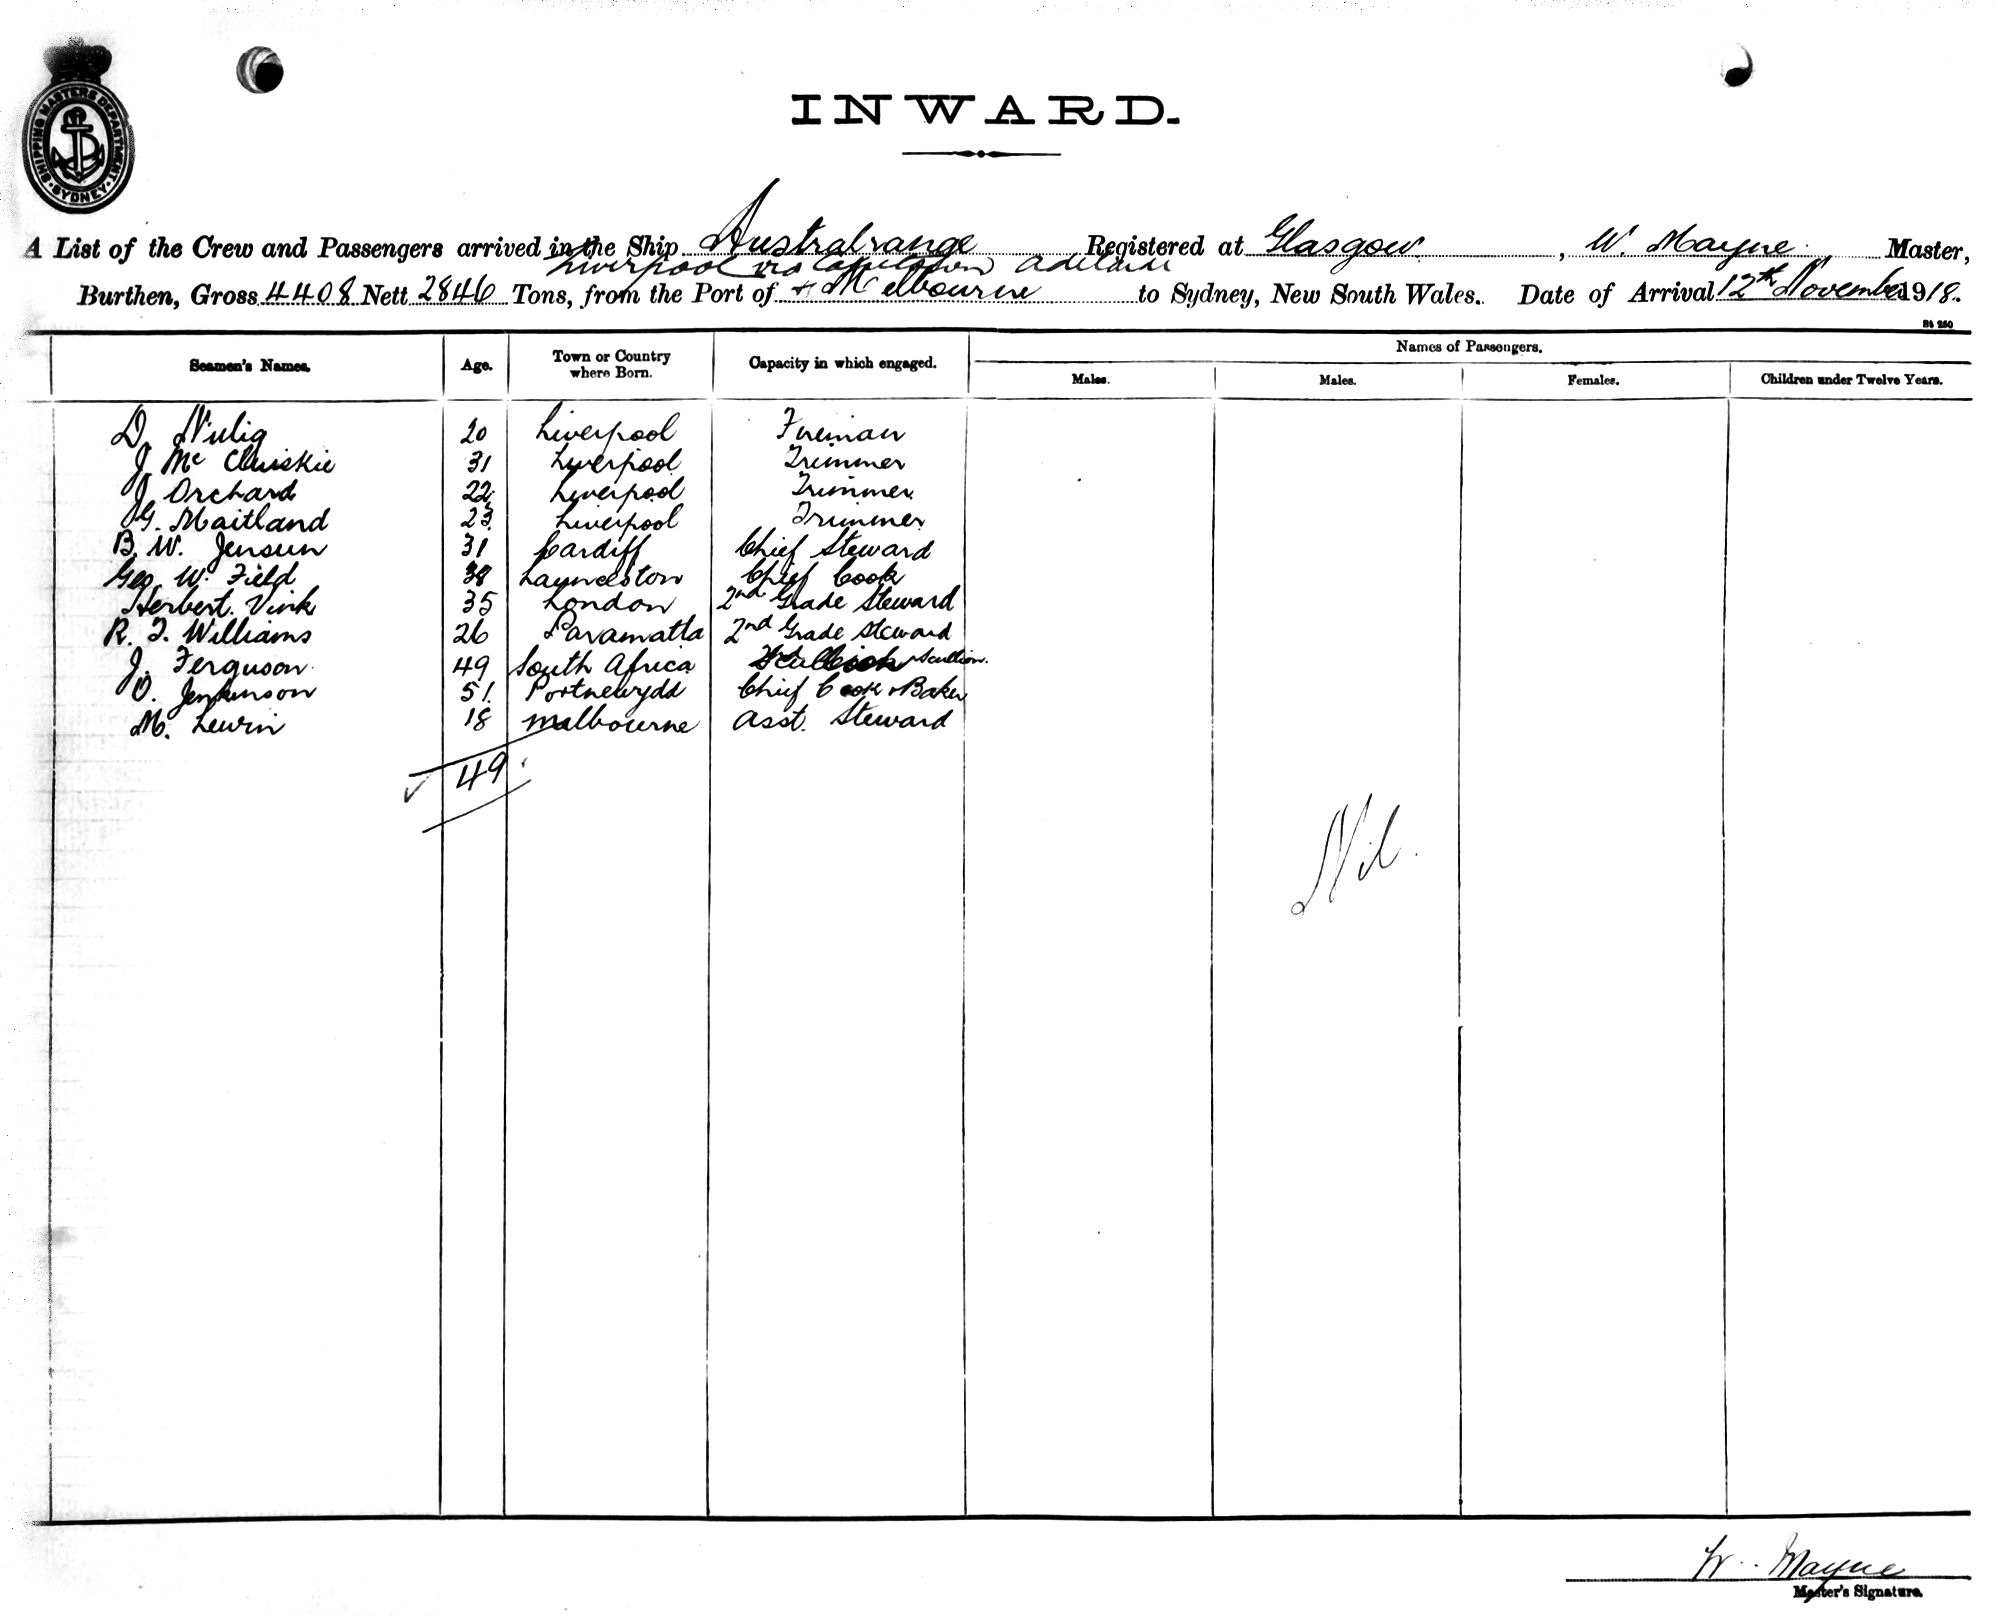 SHIPPING MASTERS DEPARTMENT
SYDNEY
INWARD.
A List of the Crew and Passengers arrived in the Ship Australrange Registered at Glasgow, W. Mayne Master,
Liverpool via Capetown Adelaide
Burthen, Gross 4408 Nett 2846 Tons, from the Port of + Melbourne to Sydney, New South Wales. Date of Arrival 12th November 1918.
St 250
Seamen's Names. Age. Town or Country where Born. Capacity in which engaged. Names of Passengers.
Males. Males. Females. Children under Twelve Years.
D. 20 Liverpool Fireman
J Mc Cluiskie 31 Liverpool Trimmer
J Orchard 22 Liverpool Trimmer
G. Maitland 23 Liverpool Trimmer
B. W. Jensen 31 Cardiff Chief Steward
Geo. W. Field 38 Launceston Chief Cook
Herbert. Vink 35 London 2nd Grade Steward
R. J. Williams 26 Paramatta 2nd Grade Steward
J. Ferguson 49 South Africa Scullion.
O. Jenkinson 51 Portnewydd Chief Cook & Baker
M. Lewin 18 Melbourne Asst. Steward
49
Nil.
W. Mayne
Master's Signature.